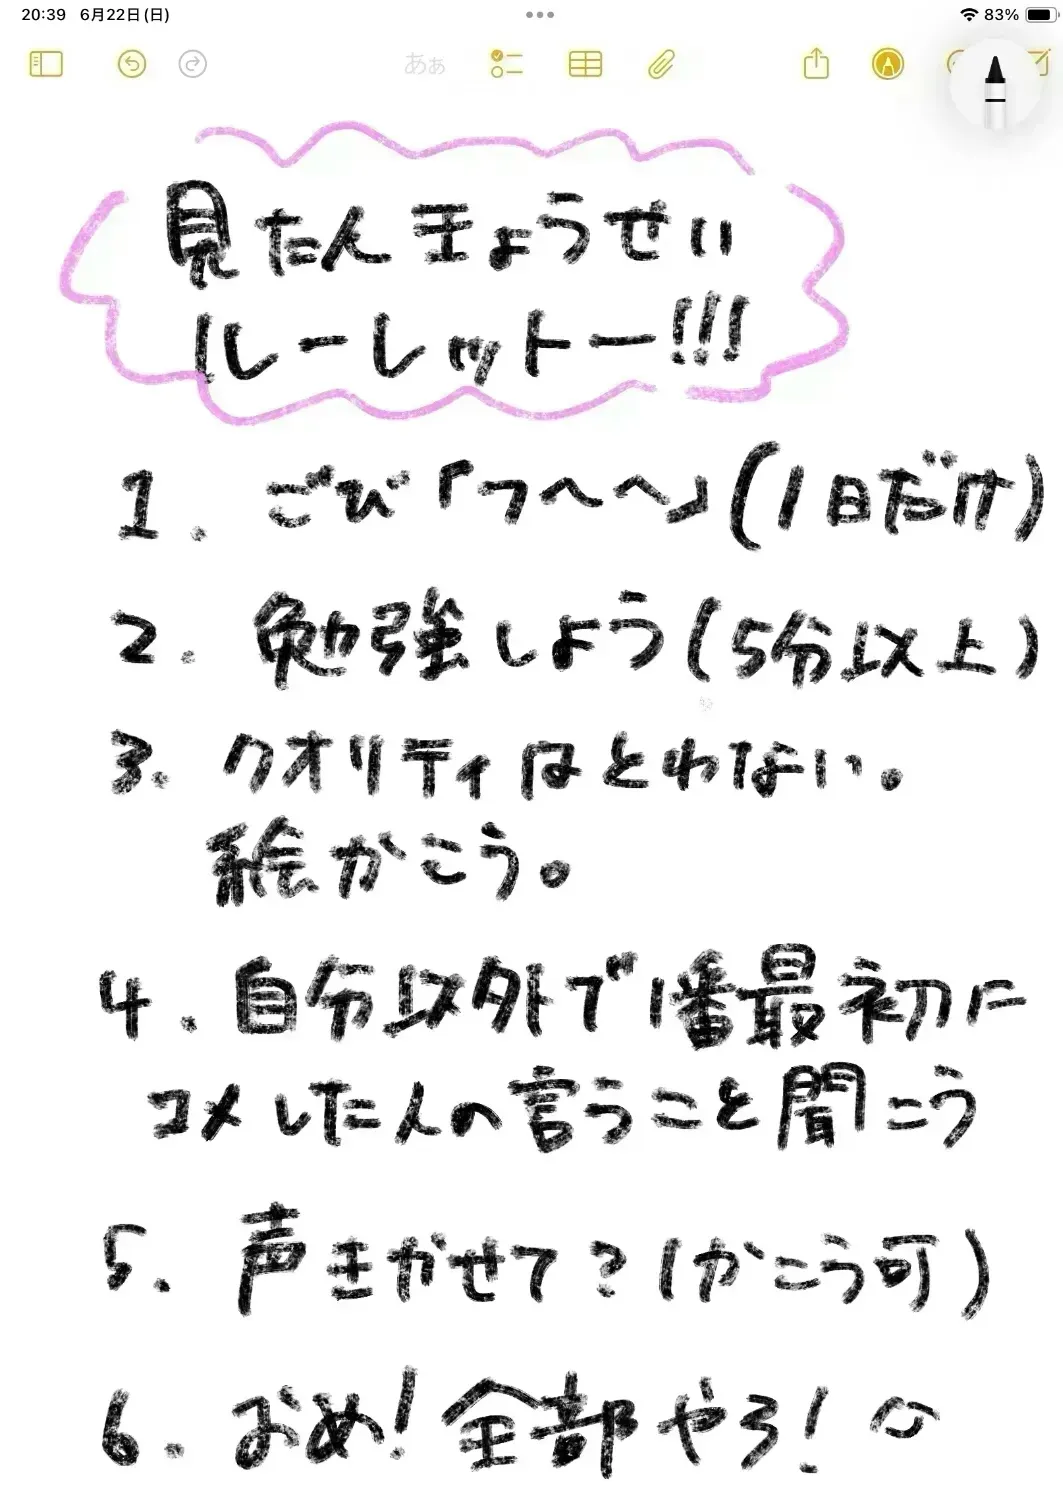 20:39 6月22日(日) 83%
あぁ
見たんきょうせい
ルーレットー!!!
1. ごび「フヘヘ」(1日だけ)
2. 勉強しよう(5分以上)
3. クオリティはとわない。
絵かこう。
4. 自分以外で1番最初に
コメした人の言うこと聞こう
5. 声きかせて?(かこう可)
6. おめ!全部やろ!